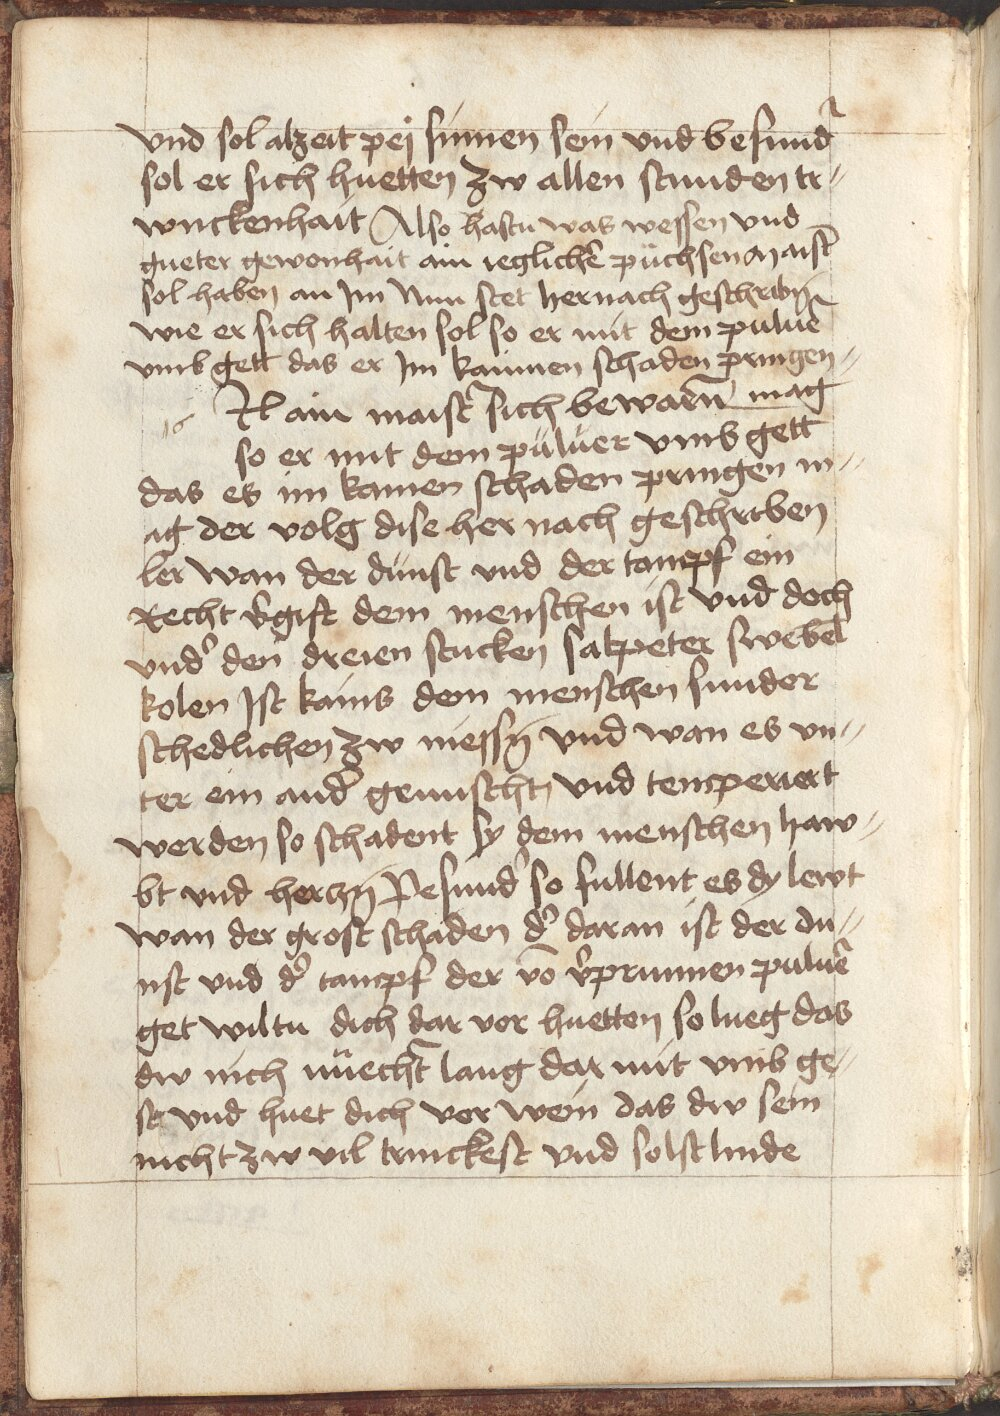 vnd sol alzeit pej sinnen sein vnd besund̾
sol er sich huetten zw allen stunden tr〃
wnckenhait Also hastu was wessen vnd
gueter gewonhait ain ieglich̾e püchsen maist̾
sol haben an Im Nun stet hernach geschribn̄
wie er sich halten sol so er mit dem puluē
vmb gett das er Im kainnen schaden pringen〃
16 Il ain maist̾ sich bewarn̄ mag
so er mit dem puluer vmb gett
das es im kainen schaden pringen m〃
ag der volg dise her nach geschriben
ler Wan der dunst vnd der tampf ein
Recht v̾gift dem menschen ist vnd doch
vnd̾ den dreien stucken salpeter swebel
kolen Ist kains dem menschen sunder
schedlichen zw niessn̄ vnd wan es vn〃
ter ein and̾ gemischt vnd temperiert
werden so schadent sy dem menschen haw〃
bt vnd herczn̄ Pesund̾ so fullent es dy lewt
wan der grost schaden d̾ daran ist der du〃
nst vnd d̾ tampf der vō v̾prunnen puluē
get wiltu dich dar vor huetten so lueg das
dw nich nüecht̾ lang dar mit vmb ge〃
st vnd huet dich vor wein das dw sein
nicht zw vil trinckest vnd solst linde